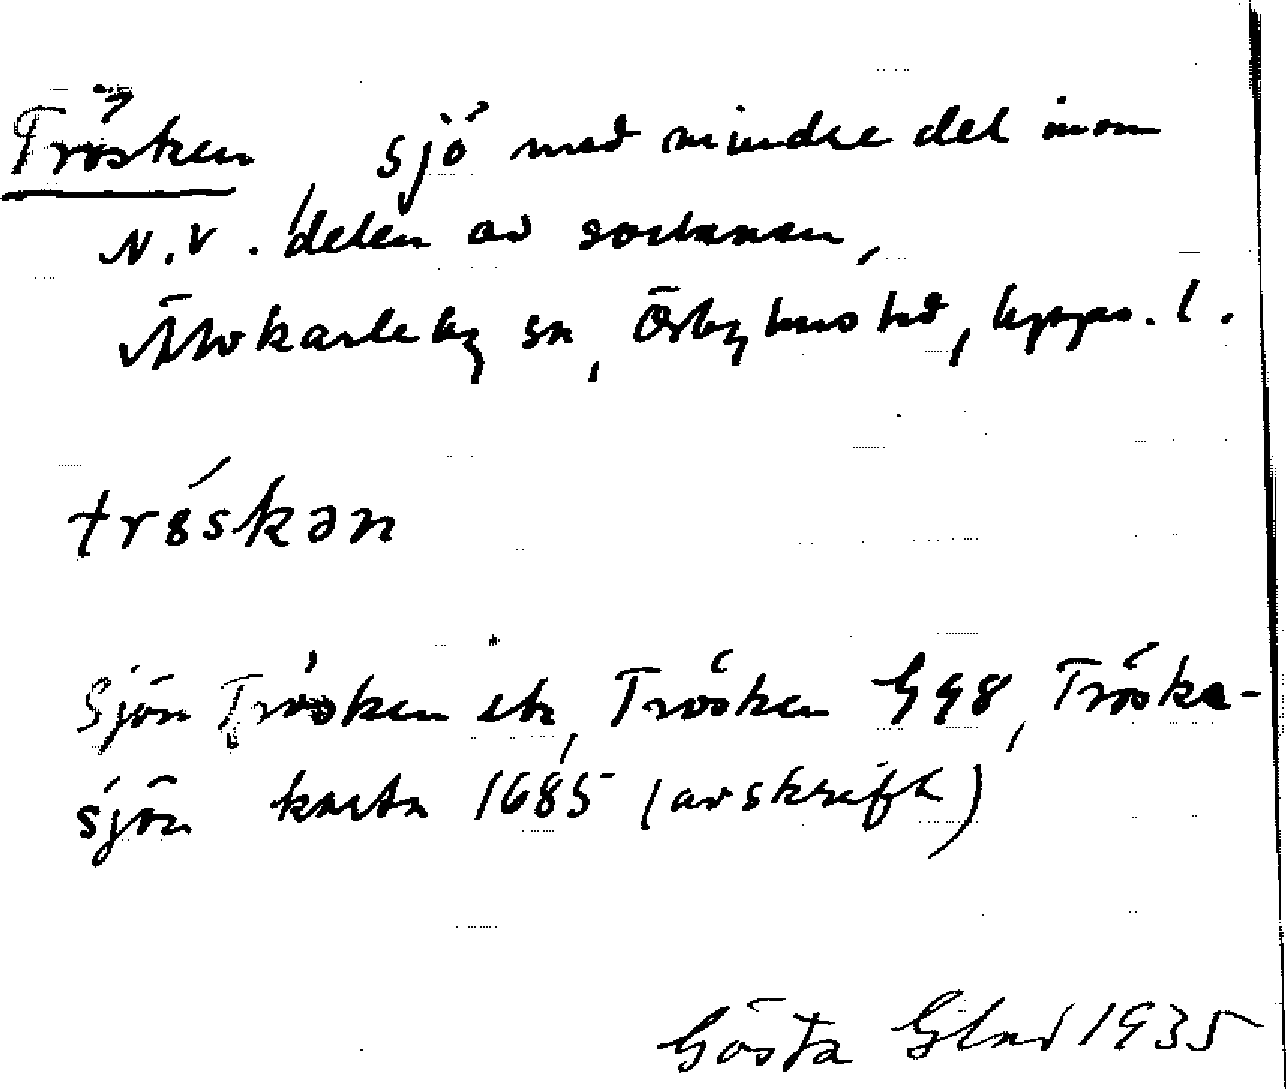 Trösken, sjö med mindre del inom
N.V. delen av socknen,
Älvkarleby sn, Örbyhus hd, Upps. l.
tröskən
Sjön Trösken ek, Trösken G98, Tröske-
sjön karta 1685 (avskrift)
Gösta Glad 1935